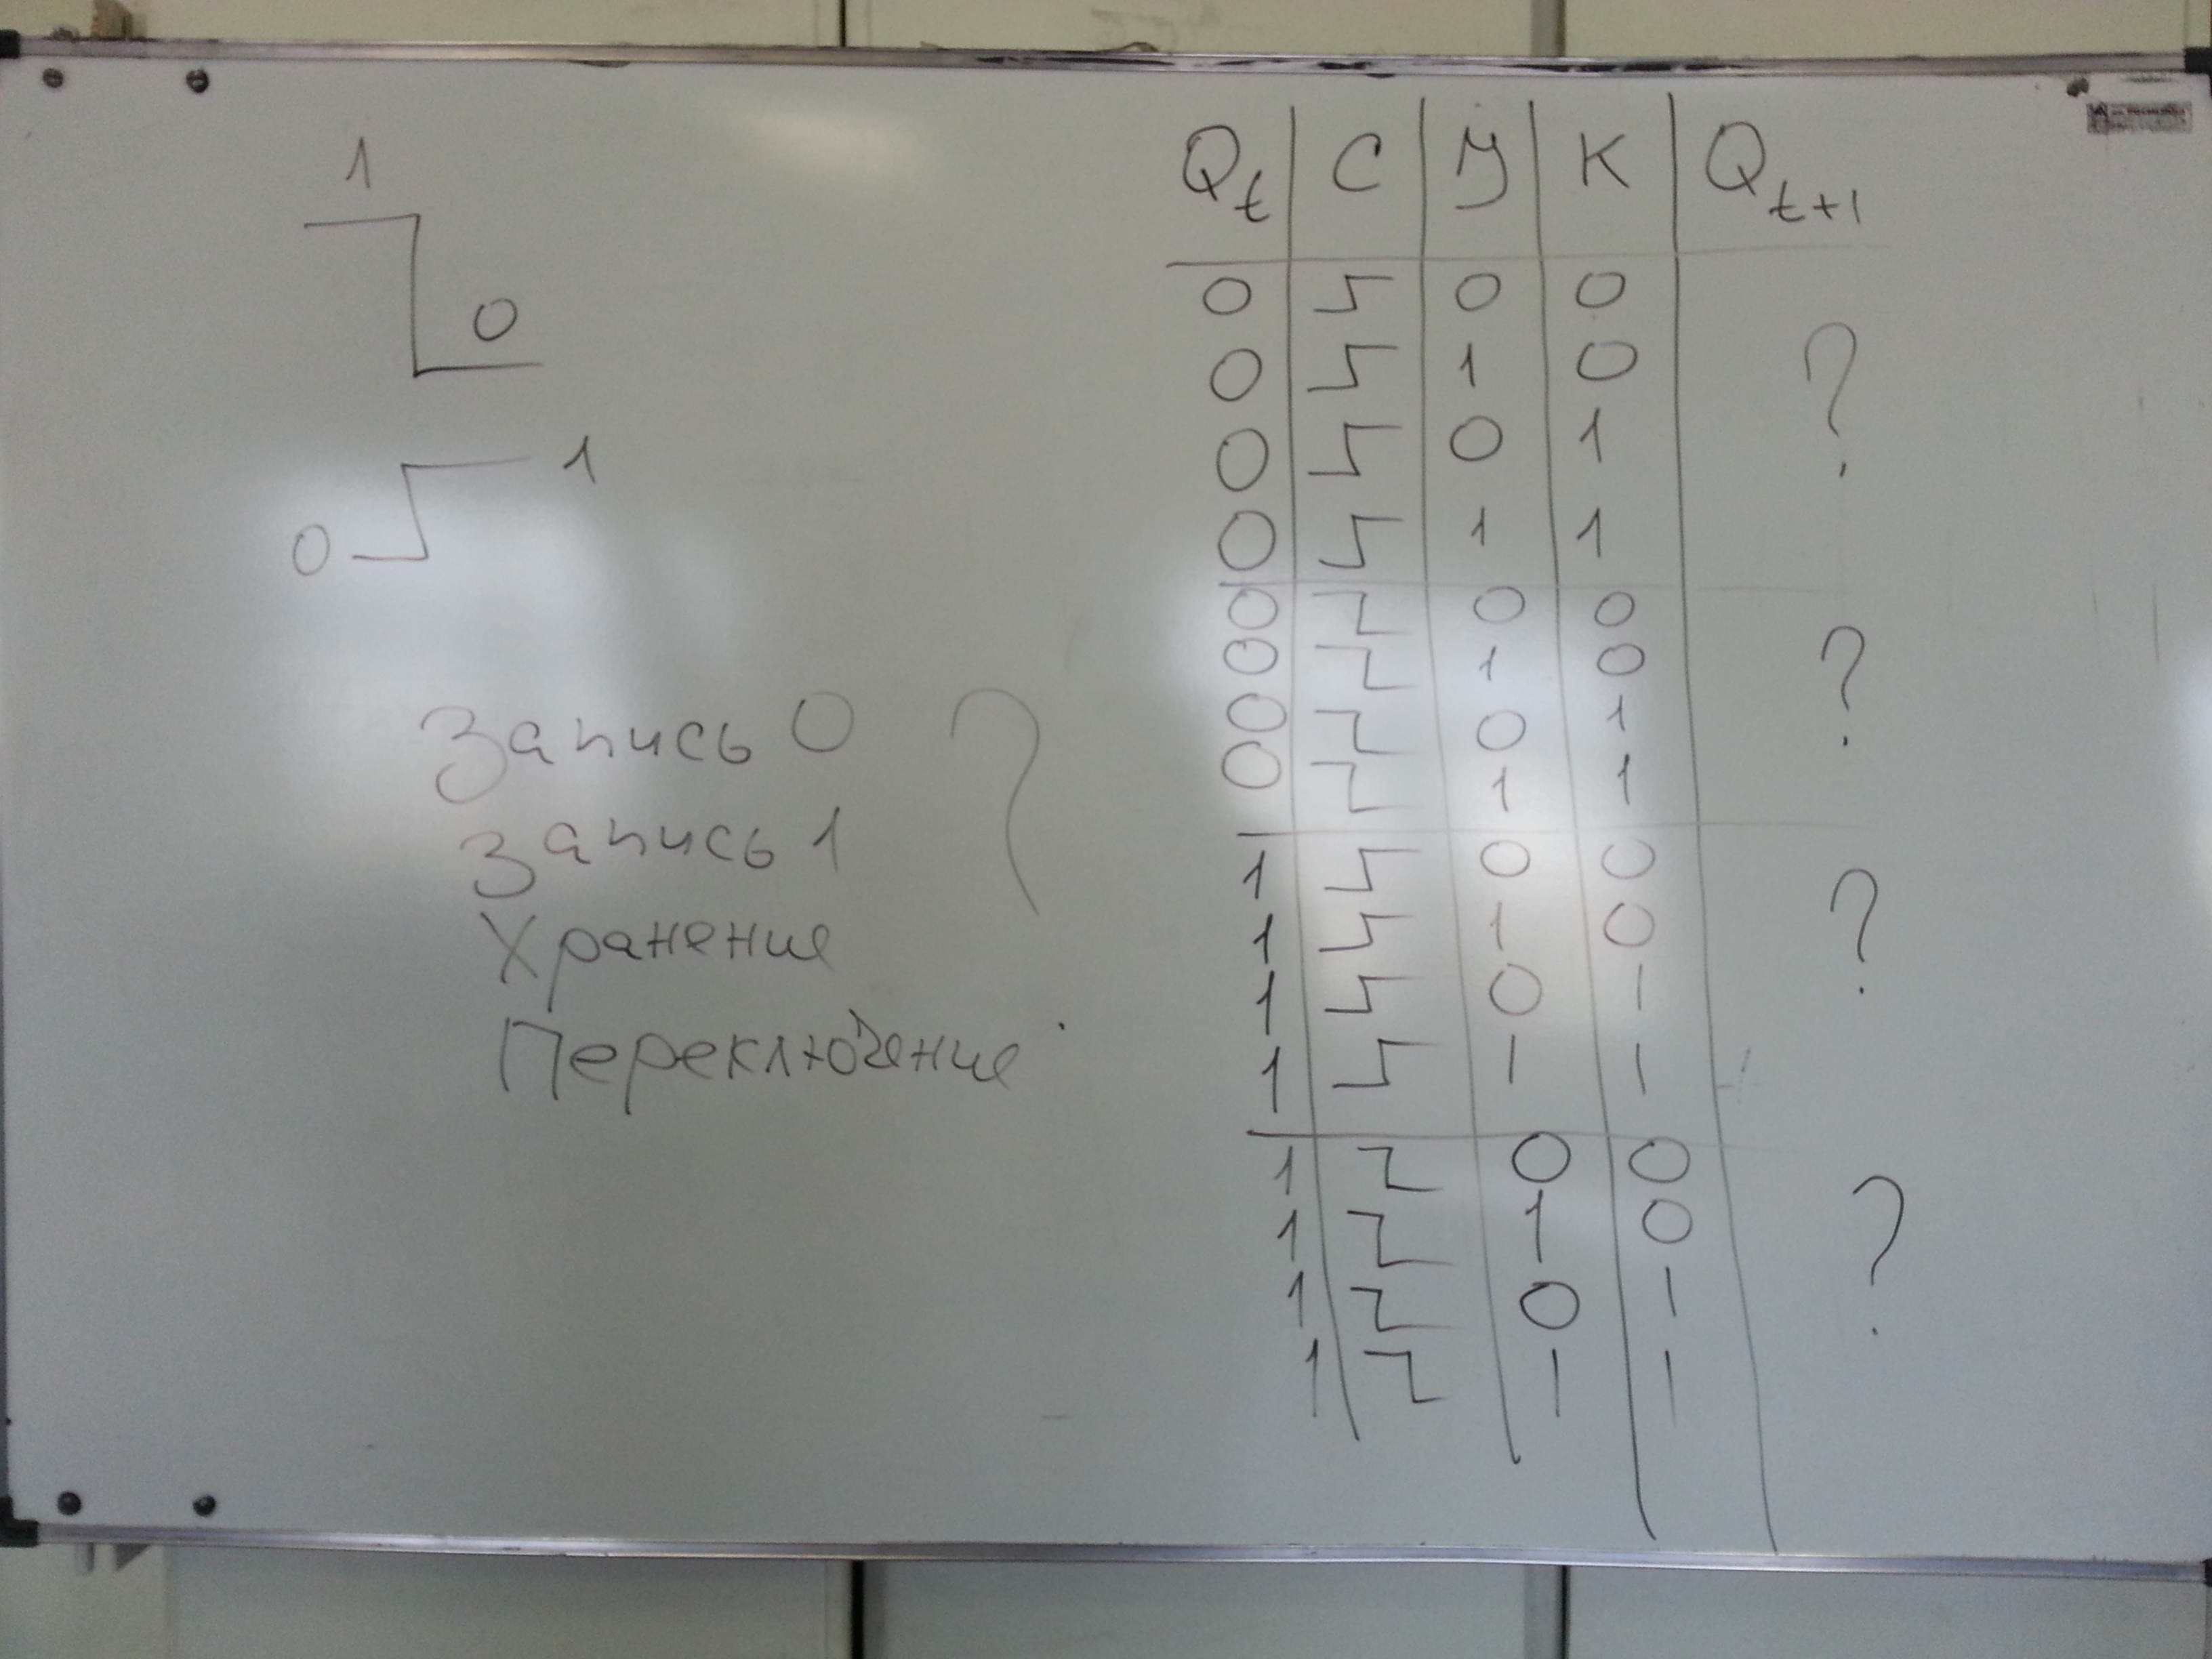 1
0
0 1
Запись 0 ?
Запись 1
Хранение
Переключение
Q t C J K Q t+1
0 0 0
0 1 0 ?
0 0 1
0 1 1
0 0 0
0 1 0 ?
0 0 1
0 1 1
1 0 0
1 1 0 ?
1 0 1
1 1 1
1 0 0
1 1 0 ?
1 0 1
1 1 1